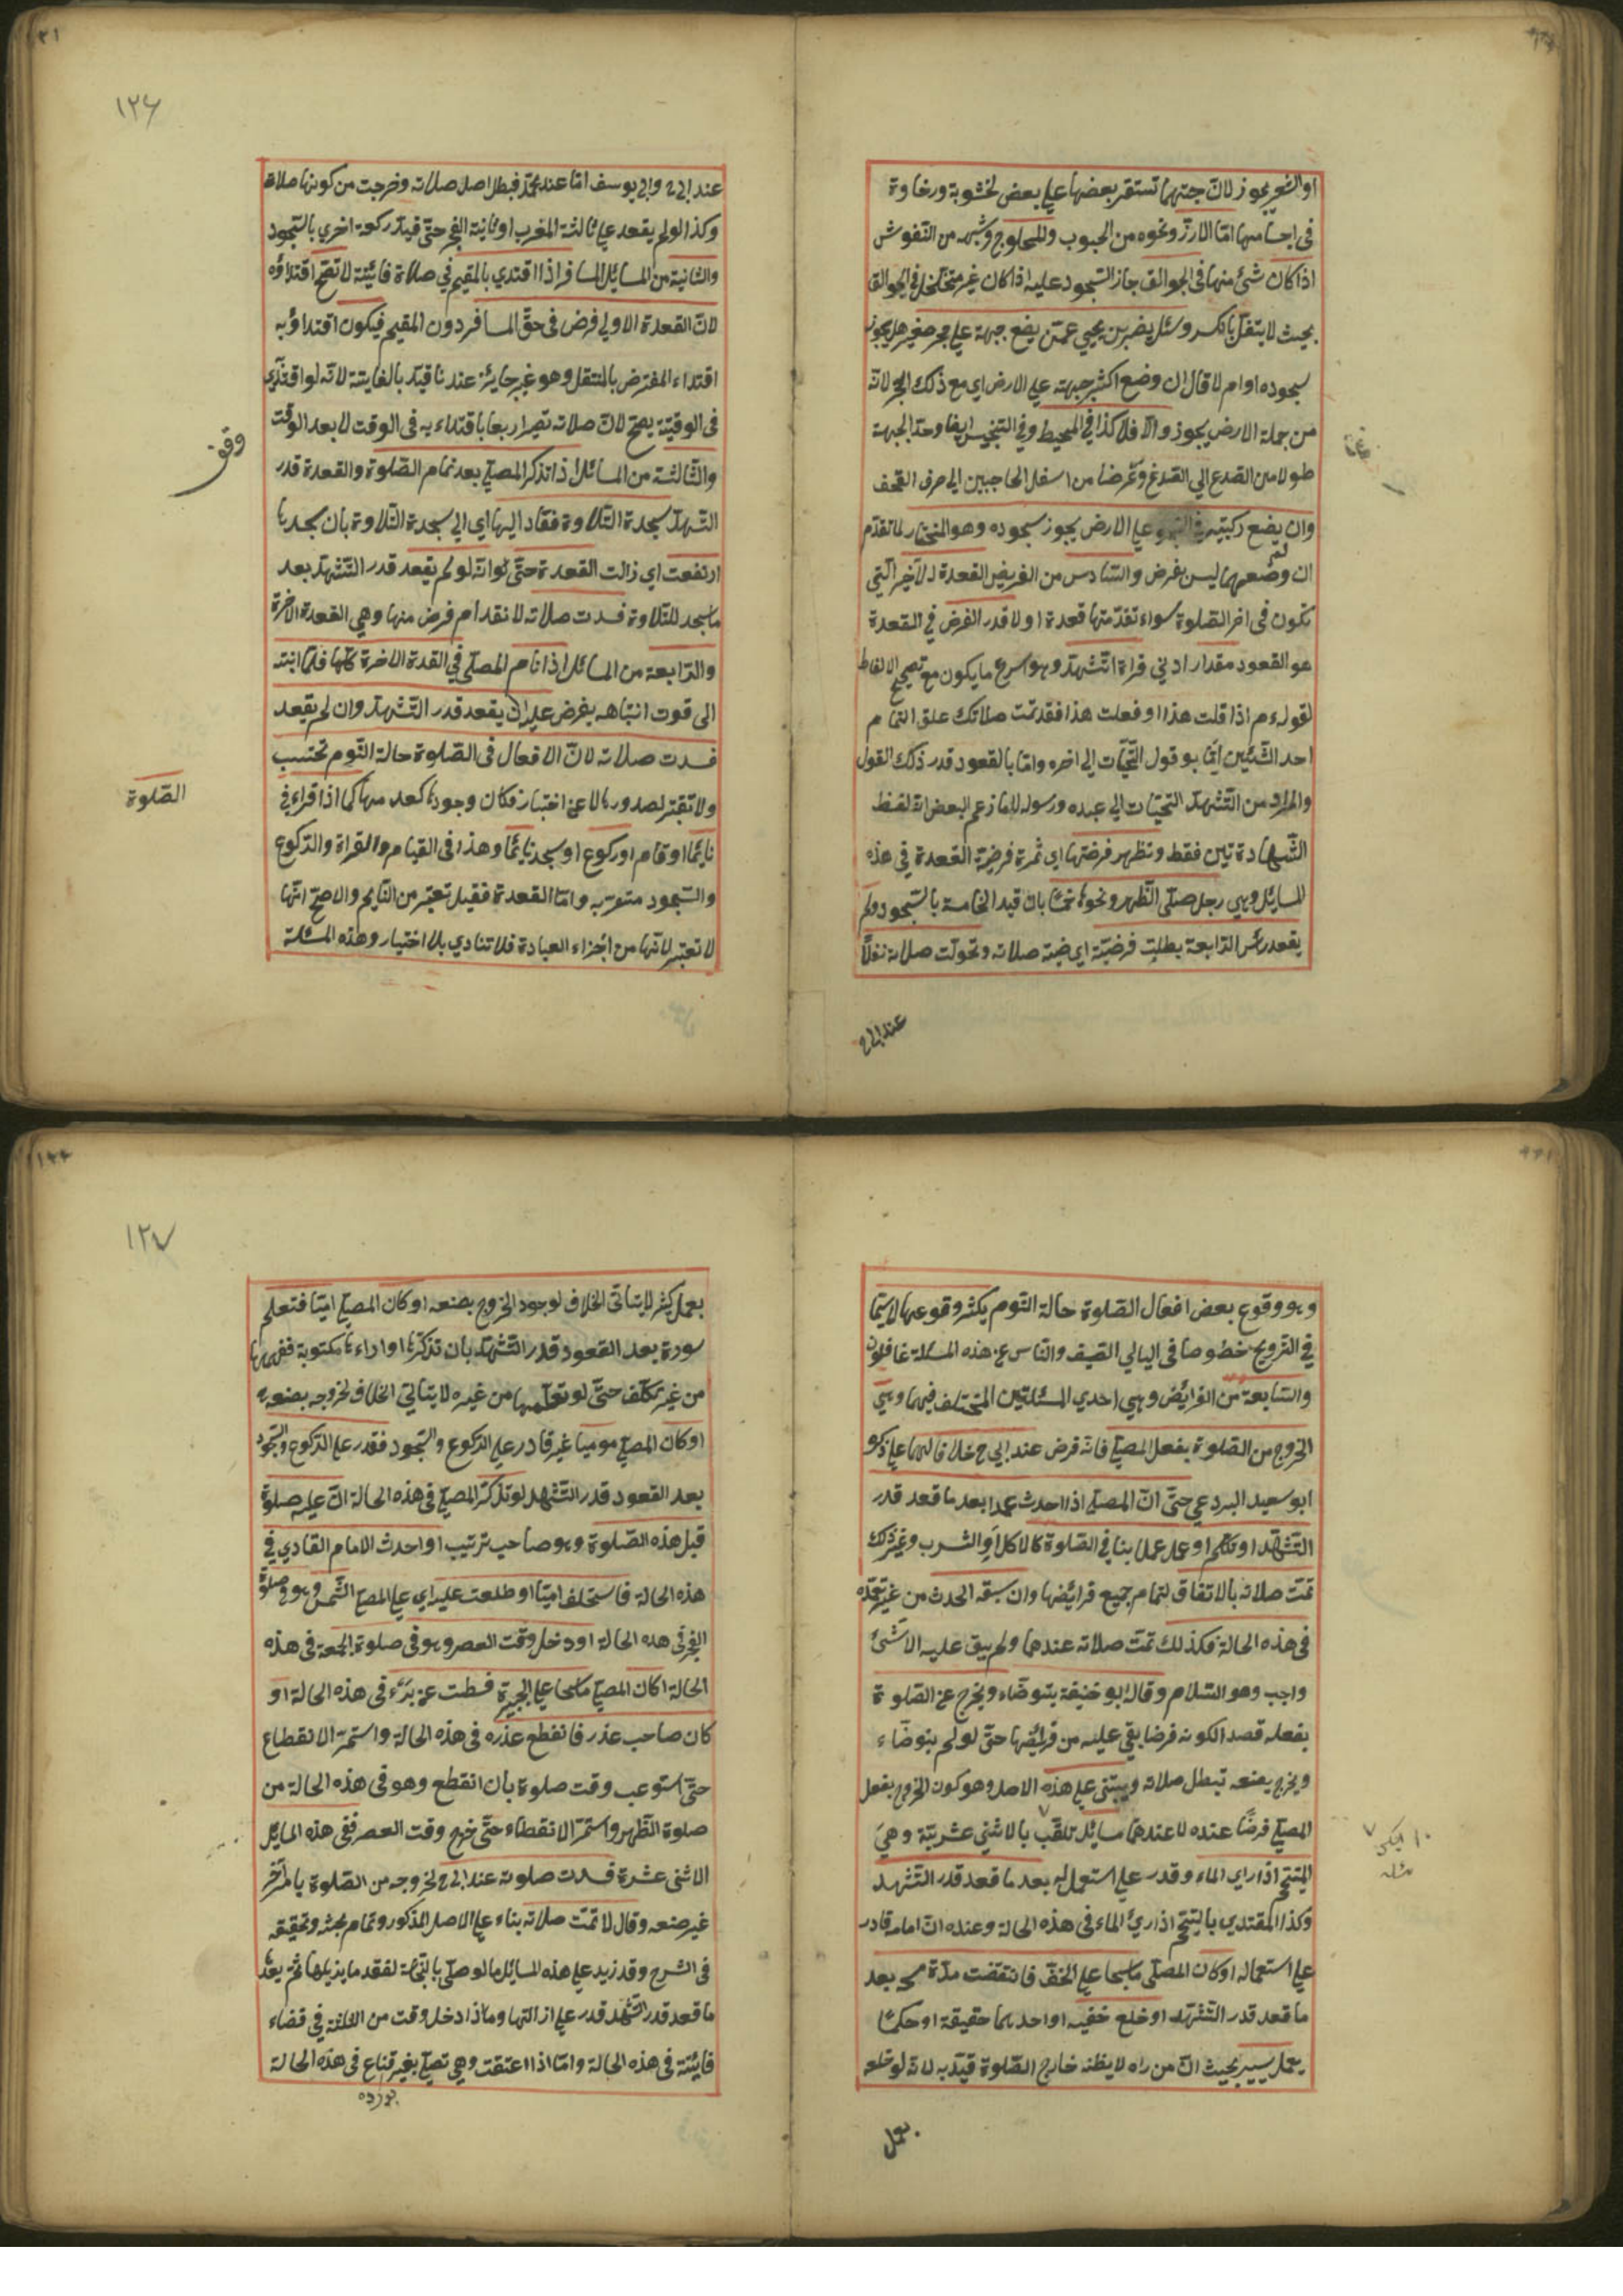 او الشعير يجوز لان جتهما تستقر بعضها علي بعض لخشونة ورخاوة
في اجسامها امّا الارزّ ونحوه من الحبوب والمحلوج وشبهه من النفوش
اذا كان شئ منها في الجوالق جاز السّجود عليه اذا كان غير متخلخل في الجوالق
بحيث لا يتفل بالكبس وسئل نصر بن يحيي عمّن يضع جبهة علي حجر صغير هل يجوز
سجوده او ام لا قال ان وضع اكثر جبهته علي الارض اي مع ذلك الحجر لانّه
من جملة الارض يجوز والّا فلا كذا في المحيط وفي التجنيس ايضا وحدّ الجبهة
طولا من الصّدع الي الصّدغ وعرضا من اسفل الحاجبين الي حرف القحف
وان يضع ركبتيه في السّجود علي الارض يجوز سجوده وهو المختار لما تقدّم
ان وضعهما ليس بفرض والسّادس من الفريض القعدة الاخير الّتي
تكون في اخر الصّلوة سواء تقدّمتها قعدة او لا قدر الفرض في القعدة
هو القعود مقدار ادني قراة التّشهّد وهو اسرع ما يكون مع تصحيح الالفاظ
لقوله م اذا قلت هذا او فعلت هذا فقد تمّت صلاتك علق التمام
احد الشّيئين امّا بو قول التّحيّات الي اخره وامّا بالقعود قدر ذلك القول
والمراد من التّشهّد التحيّات الي عبده ورسوله لا ما زعم البعض انّه لفظ
الشّهادة تين فقط وتظهر فرضتها اي ثمرة فرضيّة القعدة في هذه
المسايل وهي رجل صلّي الظّهر ونحوها خمسا بان قيد الخامسة بالسّجود ولم
يقعد رئس الرّابعة بطلت فرضيّته اي فرضيّة صلاته وتحولت صلاته نفلًا
عند ابي ح
١٢٦
عند ابي ح وابي يوسف امّا عند محمّد فبطل اصل صلاته وخرجت من كونها صلاة
وكذا لو لم يقعد علي ثالثة المغرب او ثانية الفجر حتّي قيّد ركعة اخري بالسّجود
والثانية من المسايل المسافر اذا اقتدي بالمقيم في صلاة فائيتة لا تصحّ اقتداؤه
لانّ القعدة الاولي فرض في حقّ المسافر دون المقيم فيكون اقتداؤه به
اقتداء المفترض بالمتنفل وهو غير جايز عندنا قيّد بالفايتة لانّه لو اقتدي
في الوقتيّة يصحّ لانّ صلاته تصير اربعا باقتداءه به في الوقت لا بعد الوقت
والثّالثة من المسائل اذا تذكر المصلّي بعد تمام الصّلوة والقعدة قدر
التّشهّد سجدة التّلاوة فعاد اليها اي الي سجدة التّلاوة بان سجدها
ارتفعت اي زالت القعدة حتّي لو انّه لو لم يقعد قدر التّشهّد بعد
ما سجد للتّلاوة فسدت صلاته لا نقدام فرض منها وهي القعدة الاخرة
والرّابعة من المسائل اذا نام المصلّي في القعدة الاخرة كلّها فلمّا انتبه
الي قوت انتباهه يفرض عليه ان يقعد قدر التّشهّد وان لم يقعد
فسدت صلاته لانّ الافعال في الصّلوة حالة النّوم تحتسب
ولا تعتبر لصدورها لا عن اختيار فكان وجودها كعدمها كما اذا قراء في
نايمًا او قام او ركوع او سجد نايمًا وهذا في القيام والقراة والرّكوع
والسّجود متقرّر به وامّا القعدة فقيل تعتبر من النّايم والاصحّ انّها
لا تعتبر لانّها من اجزاء العبادة فلا تتادي بلا اختيار وهذه المسئلة
وقف
الصّلوة
وهو وقوع بعض افعال الصّلوة حالة النّوم يكثر وقوعها لا سيّما
في التّرويح خصوصا في اليالي الصّيف والنّاس عن هذه المسئلة غافلون
والسّابعة من الفرائض وهي احدي المسئلتين المختلف فيهما وهي
الخروج من الصّلوة بفعل المصلّي فانّه فرض عند ابي ح خلافا لهما علي ذكره
ابو سعيد البردعي حتّي انّ المصلّي اذا احدث عمدا بعد ما قعد قدر
التّشهّد او تكلّم او عمل عملا ينافي الصّلوة كالاكل او الشرب وغير ذلك
تمّت صلاته بالاتفاق لتمام جميع فرائضها وان سبقه الحدث من غير تعمّده
في هذه الحالة فكذلك تمّت صلاته عندهما ولم يبق عليه الا شئ
واجب وهو السّلام وقال ابو حنيفة يتوضّاء ويخرج عن الصّلوة
بفعله قصد الكونه فرضا بقي عليه من فرائضها حتّي لو لم يتوضّاء
ويخرج بصنعه تبطل صلاته ويبتني علي هذه الاصل وهو كون الخروج بفعل
المصلّي فرضًا عنده لا عندهما مسايل تلقّب بالاثني عشريّة وهي
المتيمّم اذا راي الماء وقدر علي استعماله بعد ما قعد قدر التّشهد
وكذا المقتدي بالمتيمّم اذا ريء الماء في هذه الحالة وعنده انّ امامه قادر
علي استعماله او كان المصلّي ماسحا علي الخفّ فانقضت مدّة مسحه بعد
ما قعد قدر التّشهّد او خلع خفّيه او احدهما حقيقة او حكمًا
بعمل يسير بحيث انّ من راه لا يظنّه خارج الصّلوة قيّد به لانّه لو خلعه
بعمل
١٢٧
بعمل كثير لا يتاتي الخلاف لوجود الخروج بصنعه او كان المصلّي امّيّا فتعلم
سورة بعد القعود قدر التّشهّد بان تذكّرها او راءها مكتوبة ففهمها
من غير تكلّف حتّي لو تعلّمها من غيره لا يتاتي الخلاف لخروجه بصنعه
او كان المصلّي موميا غير قادر علي الرّكوع والسّجود فقدر علي الرّكوع والسّجود
بعد القعود قدر التّشهد لو تذكّر المصلّي في هذه الحالة انّ عليه صلوة
قبل هذه الصّلوة وهو صاحب ترتيب او احدث الامام القادي في
هذه الحالة فاستخلف امّيّا او طلعت عليه اي علي المصلّي الشّمس وهو في صلوة
الفجر في هذه الحالة او دخل وقت العصر وهو في صلوة الجمعة في هذه
الحالة او كان المصلّي ماسحا علي الجبيرة فسطت عن برء في هذه الحالة او
كان صاحب عذر فانقطع عذره في هذه الحالة واستمرّ الانقطاع
حتّي استوعب وقت صلوة بان انقطع وهو في هذه الحالة من
صلوة الظّهر واستمرّ الانقطاء حتّي خرج وقت العصر ففي هذه المسايل
الاثني عشرة فسدت صلوته عند ابي ح لخروجه من الصّلوة بامر اخر
غير صنعه وقال لا تمّت صلاته بناء علي الاصل المذكور وتمام بحثه وتحقيقه
في الشرح وقد زيد علي هذه المسايل ما لو صلّي بالنّجاسة لفقد ما يزيلها ثمّ بعد
ما قعد قدر التّشهّد قدر علي ازالتها وما ذا دخل وقت من الثلثة في قضاء
فايئتة في هذه الحالة وامّا اذا اعتقت وهي تصلّي بغير قناع في هذه الحالة